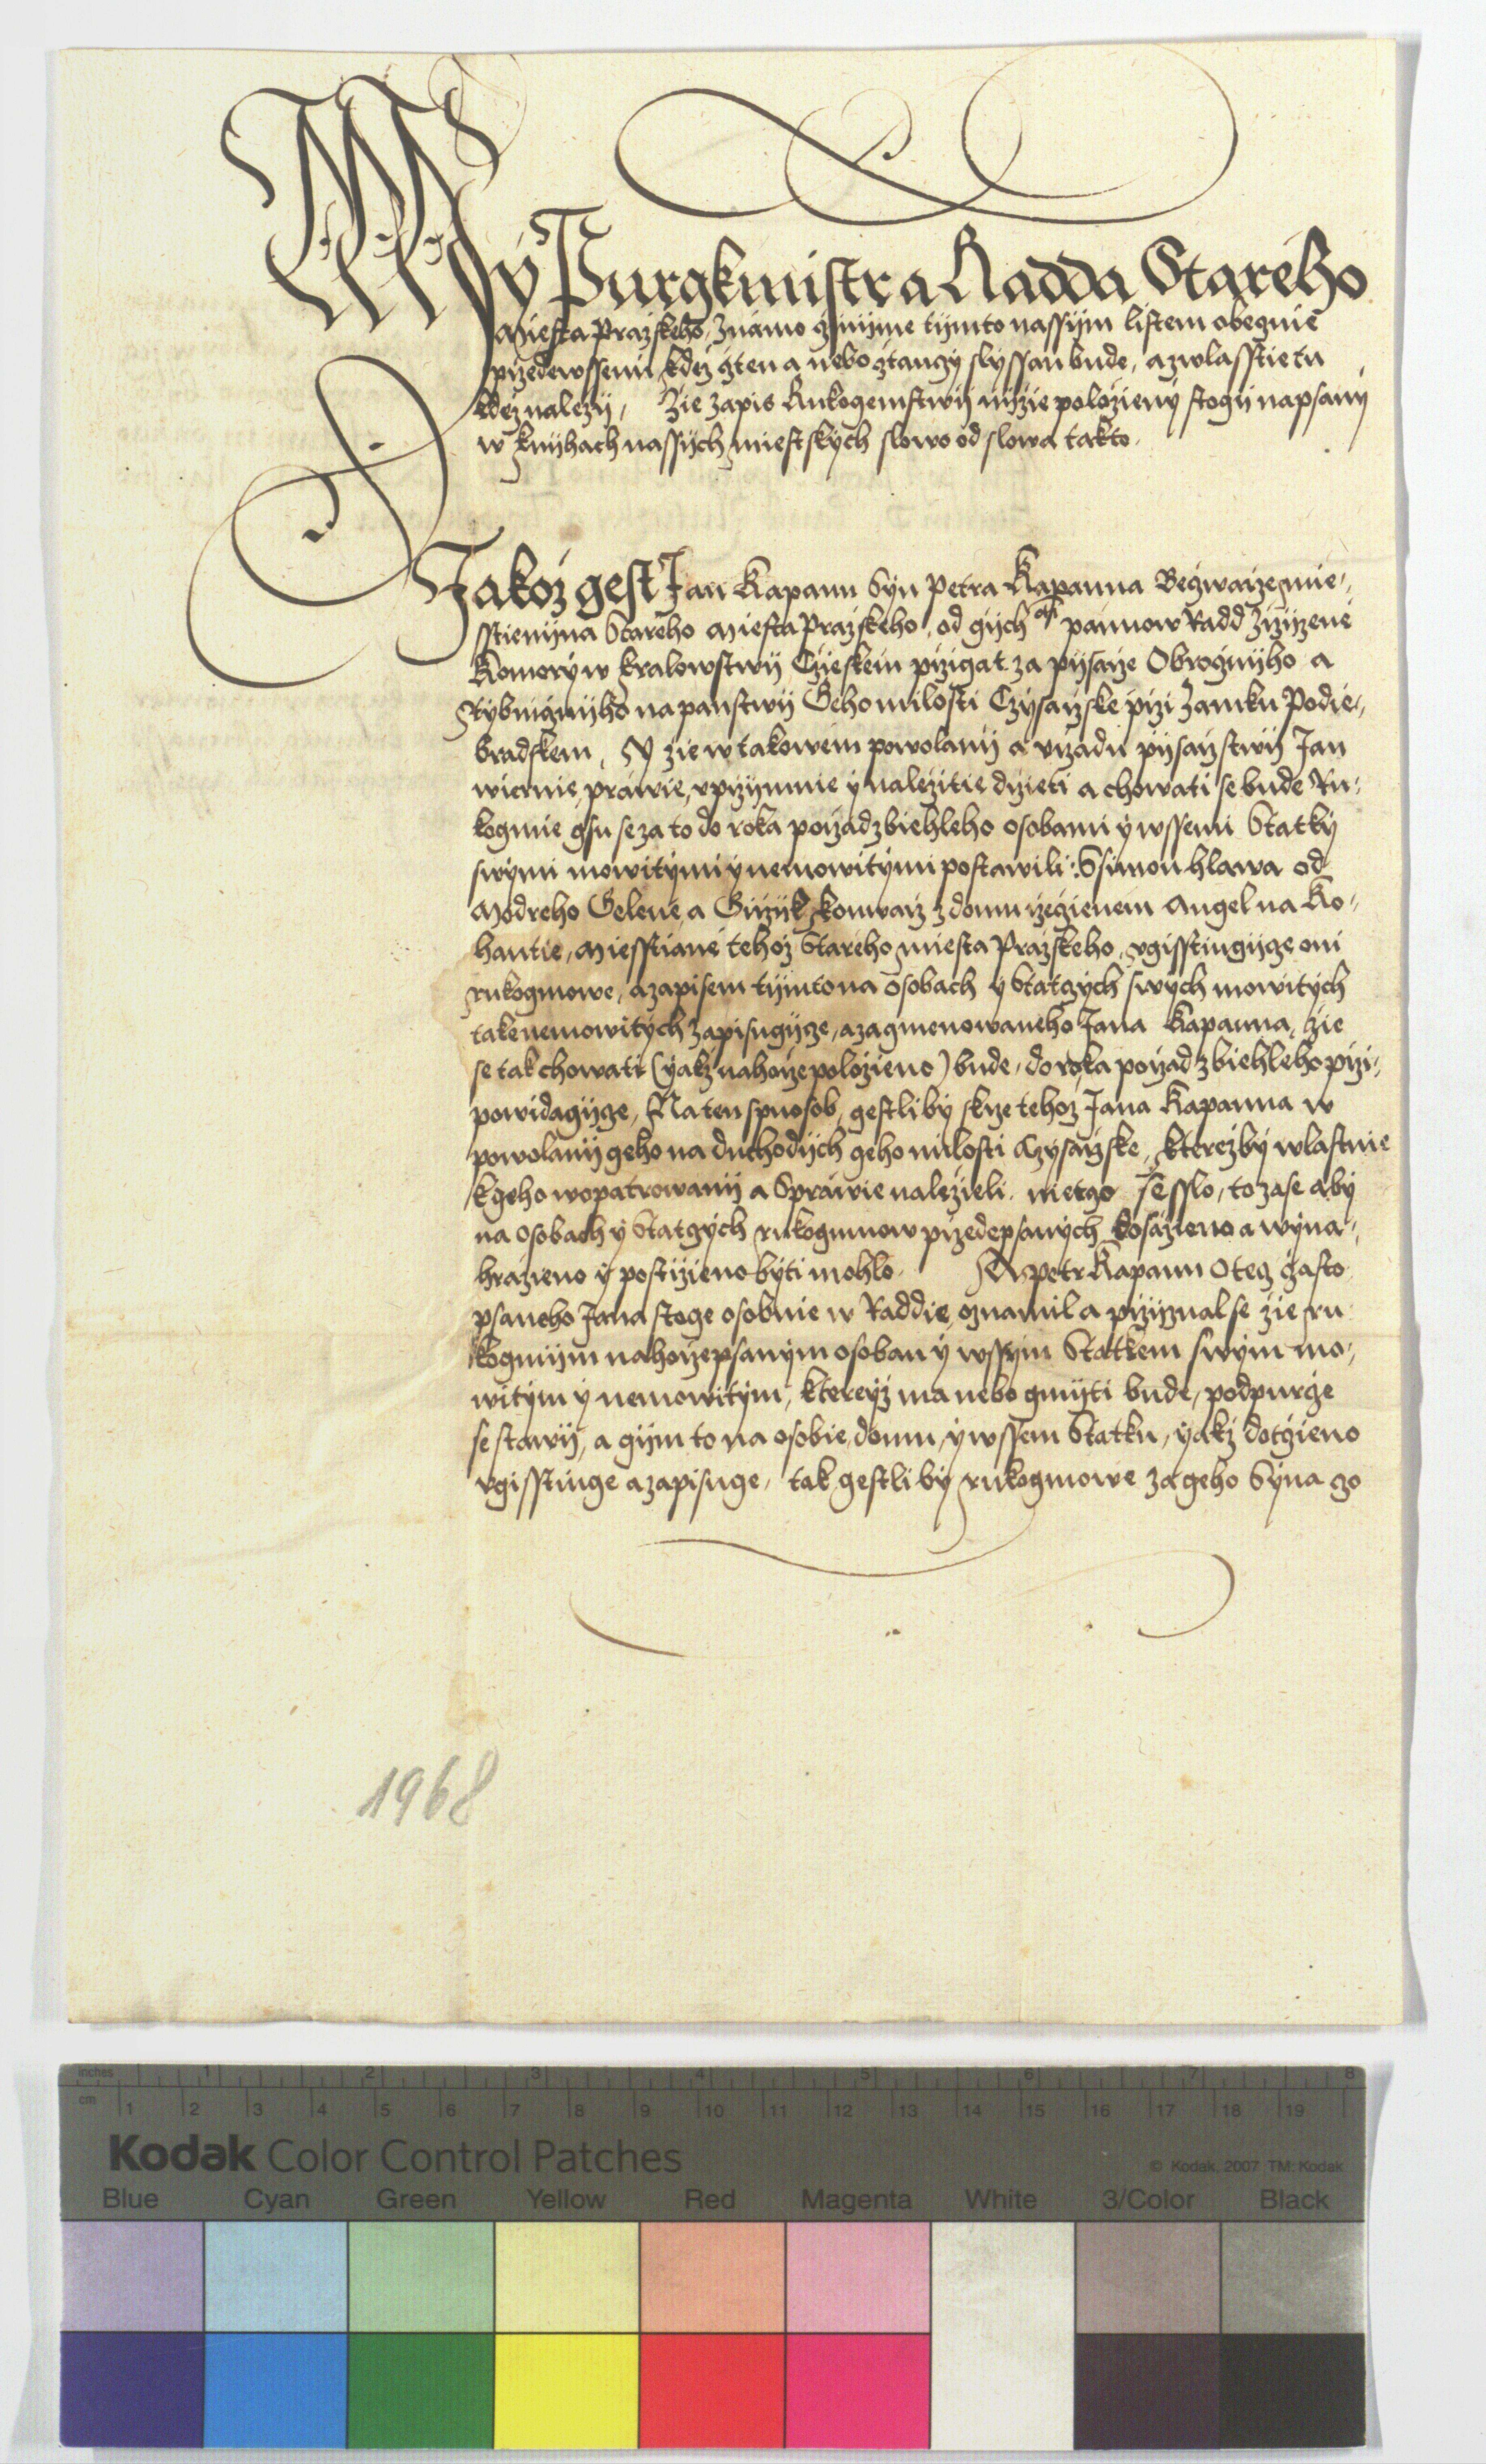 My Purgkmistr a Radda Stareho
Miesta Prażskeho, Znamo cżinijme tijmto nassijm listem obecznie
przedewssemi, kdeż cżten a nebo cżtaucy slyssan bude, a zwlasstie tu
kdeż należij, Żie zapis Rukogemstwij nijżie polożieny stogij napsany
w knijhach nassijch miestskych slowo od slowa takto.
Jakoż gest Jan Kapaun Syn Petra Kapauna Beczwarże mie-
sstienijna Stareho Miesta Prażskeho, od gijch Mti pánuow Radd Zrzijzene
Komory w kralowstwij Cżieskem prżigat za pijsarże Obrocżnijho a
Rybnicżnijho na panstwij Geho milosti Czysarżske prżi Zamku Podie-
bradskem, Y żie w takowem powolanij a vrżadu pijsarżstwij Jan
wiernie, prawie, vprżijmnie y należitie drżieti a chowati se bude Ru-
kogmie gsu se za to do roka porżad zbiehleho osobami y wssemi Statky
swymi mowitymi y nemowitymi postawili: Ssimon hlawa od
Modreho Gelena, a Girżijk konwarż z domu rzecżenem Angel na Ko-
hautie, Miesstiane tehoż Stareho miesta Prażskeho, vgisstiugijce oni
rukogmowe, a zapisem tijmto na osobach y Statcych swych mowitych
take nemowitych zapisugijce, a za gmenowaneho Jana Kapauna, żie
se tak chowati (yakż nahorże polożieno) bude, do roka porżad zbiehleho prżi-
powidagijce, Na ten spuosob, gestliby skrze tehoż Jana Kapauna w
powolanij geho na duchodijch geho milosti Czysarżske, kterežby wlastnie
k geho wopatrowanij a Sprawie należieli nietco sesslo, to zase aby
na osobach y Statcych rukogmuow prżedepsanych dosażieno a wyna-
hrazieno y postiżieno byti mohlo. A Petr Kapaun Otec cżasto
psaneho Jana stoge osobnie w Raddie oznamil a prżijznal se żie ru
kogmijm nahorżepsanym osobau y wssijm Statkem swym mo-
witym y nemowitym, kteryż ma nebo gmijti bude, podpurcże
se stawij, a gijm to na osobie, domu, y wssem Statku, yakż dotcżieno
vgisstiuge a zapisuge, tak gestliby rukogmowe za geho Syna co
1968
inches 1 2 3 4 5 6 7 8
cm 1 2 3 4 5 6 7 8 9 10 11 12 13 14 15 16 17 18 19
Kodak Color Control Patches
© Kodak, 2007 TM: Kodak
Blue Cyan Green Yellow Red Magenta White 3/Color Black